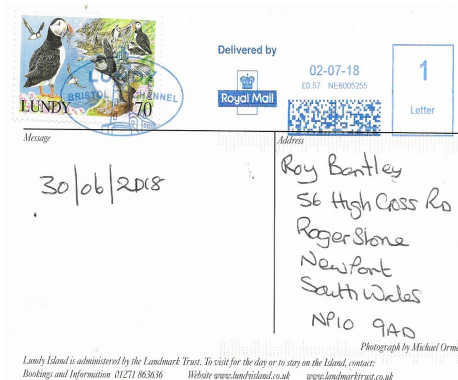 LUNDY
70
LUNDY
BRISTOL CHANNEL
Delivered by
Royal Mail
02-07-18
£0.57 NE6005255
1
Letter
Message
Address
30/06/2018
Roy Bantley
56 High Cross RD
RogerStone
NewPort
South Wales
NP10 9AD
Photograph by Michael Orme
Lundy Island is administered by the Landmark Trust. To visit for the day or to stay on the Island, contact:
Bookings and Information 01271 863636 Website www.lundyisland.co.uk www.landmarktrust.co.uk